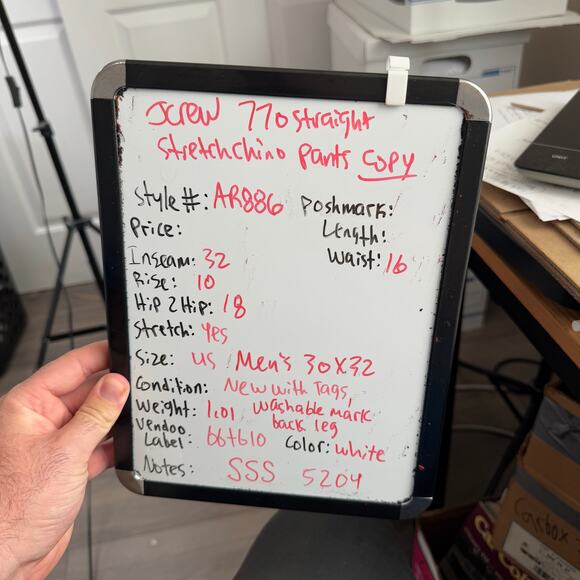 JCrew 770 straight
stretch chino pants copy
Style #: AR886 Poshmark:
Price: Length:
Inseam: 32 Waist: 16
Rise: 10
Hip 2 Hip: 18
Stretch: yes
Size: US Men's 30X32
Condition: New with Tags,
Weight: 1.01 washable mark
back leg
Vendoo
Label: 66+610 Color: white
Notes: SSS 5204